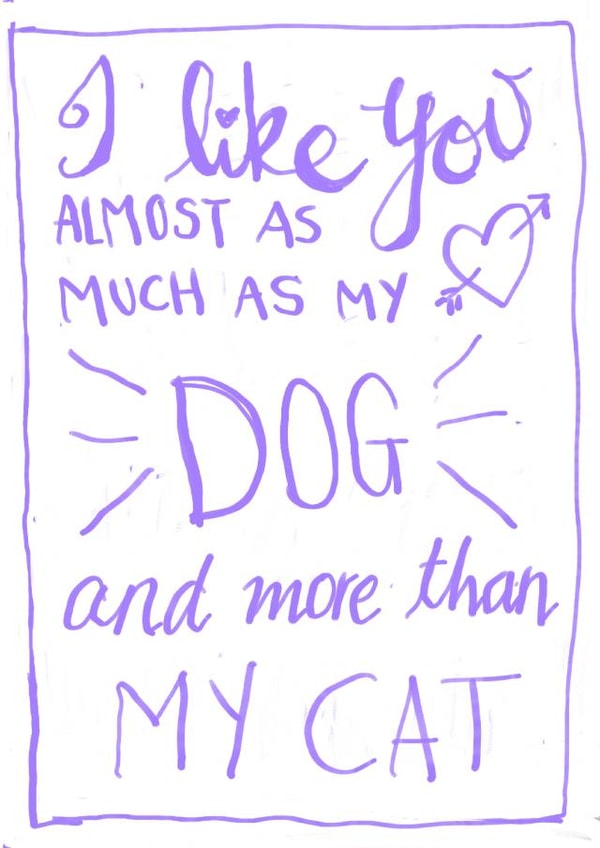 I like you
ALMOST AS
MUCH AS MY
DOG
and more than
MY CAT